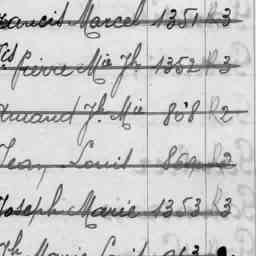 Francis Marcel 1351 R3
Pierre Mie Jh 1352 R3
Armand Jh Mie 808 R2
Jean Louis 869 R2
Joseph Marie 1353 R3
Jh Marie Louis